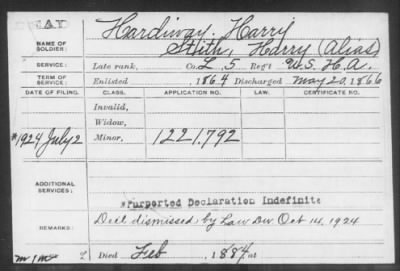 Hardiway, Harry
NAME OF SOLDIER: Stith, Harry (Alias)
SERVICE: Late rank, Co. L, 5 Reg't U.S. H.A.
TERM OF SERVICE: Enlisted , 1864 Discharged May 20, 1866
DATE OF FILING. CLASS. APPLICATION NO. LAW. CERTIFICATE NO.
Invalid,
Widow,
*1924 July 2 Minor, 1221.792
ADDITIONAL SERVICES:
*Purported Declaration Indefinite
REMARKS: Decl dismissed by Law Div Oct 14, 1924
Died Feb , 1884, at